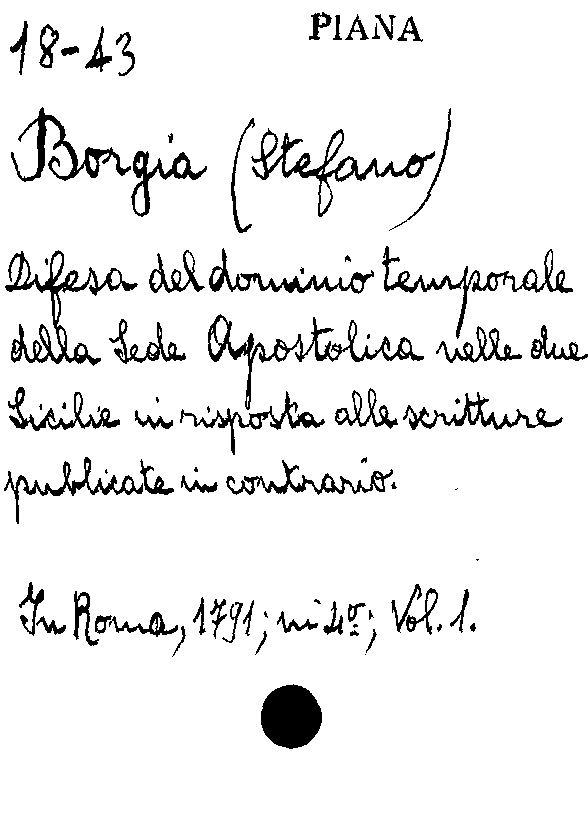 PIANA
18-43
Borgia (Stefano)
Difesa del dominio temporale
della Sede Apostolica nelle due
Sicilie in risposta alle scritture
publicate in contrario.
In Roma, 1791; in 4º; Vol. 1.